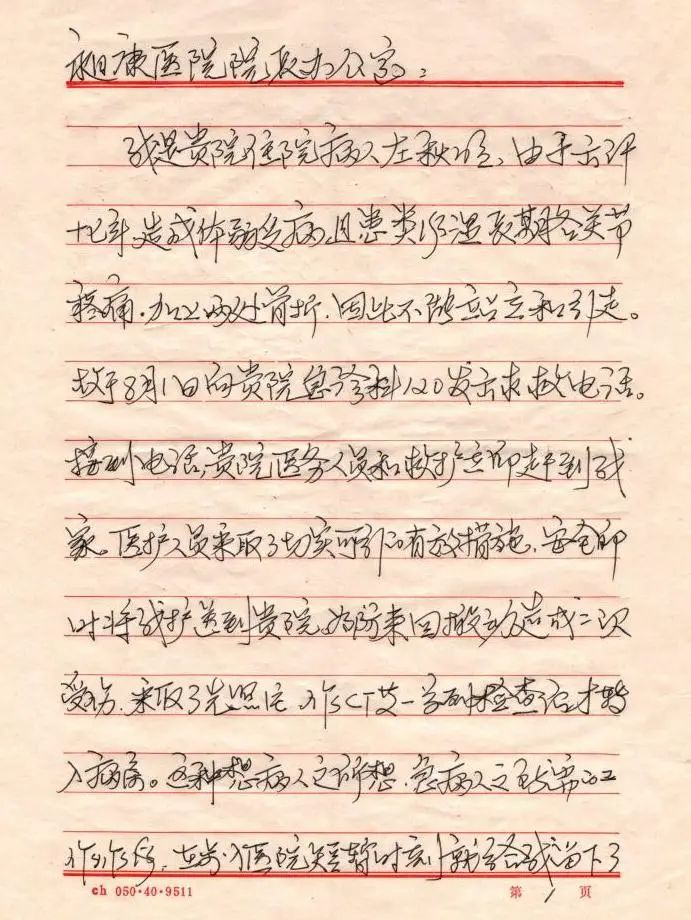 康医院院长办公室：
我是贵院住院病人左秋，由于
十七年造成体弱多病，且患类风湿长期各关节
疼痛.加上两处骨折.因此不能站立和引走。
故于8月1日向贵院急诊科120发出求救电话。
接到电话，贵院医务人员和救护立即赶到我
家。医护人员采取了切实可引的有效措施.安全即
时将我护送到贵院。为防来回搬动造成二次
受伤.采取了先照完.作CT及一系列检查后才转
入病房。这种想病人之所想.急病人之所需的工
作作风，在步入医院短暂时刻就给我留下了
ch 050·40·9511
第1页